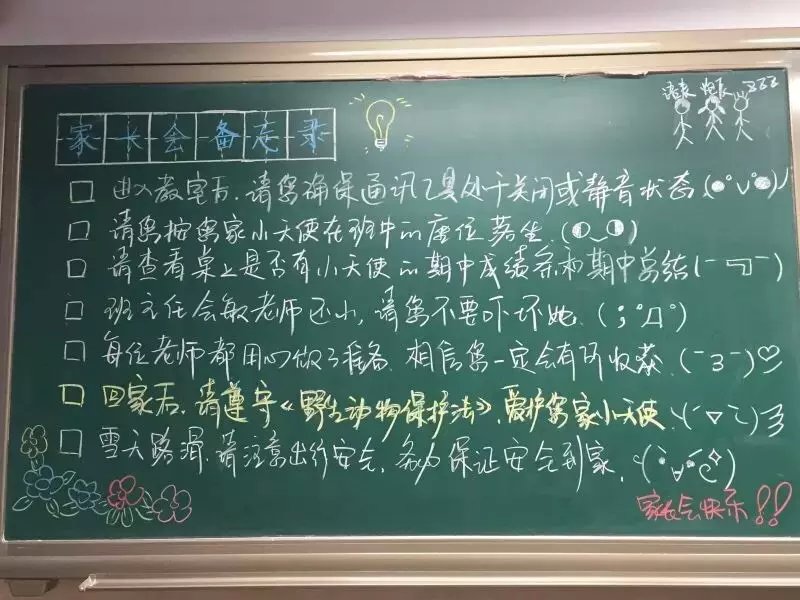 家长会备忘录
□ 进入教室后,请您确保通讯工具处于关闭或静音状态(●°v°●)
□ 请您按您家小天使在班中的座位落坐.(◐‿◑)
□ 请查看桌上是否有小天使的期中成绩条和期中总结(￣ㄱ￣)
□ 班主任会敏老师还小,请您不要吓坏她.(;°Д°)
□ 每位老师都用心做了准备.相信您一定会有所收获.(￣3￣)♡
□ 回家后,请遵守《野生动物保护法》,爱护您家小天使.
□ 雪天路滑.请注意出行安全,务必保证安全到家.
家长会快乐!!